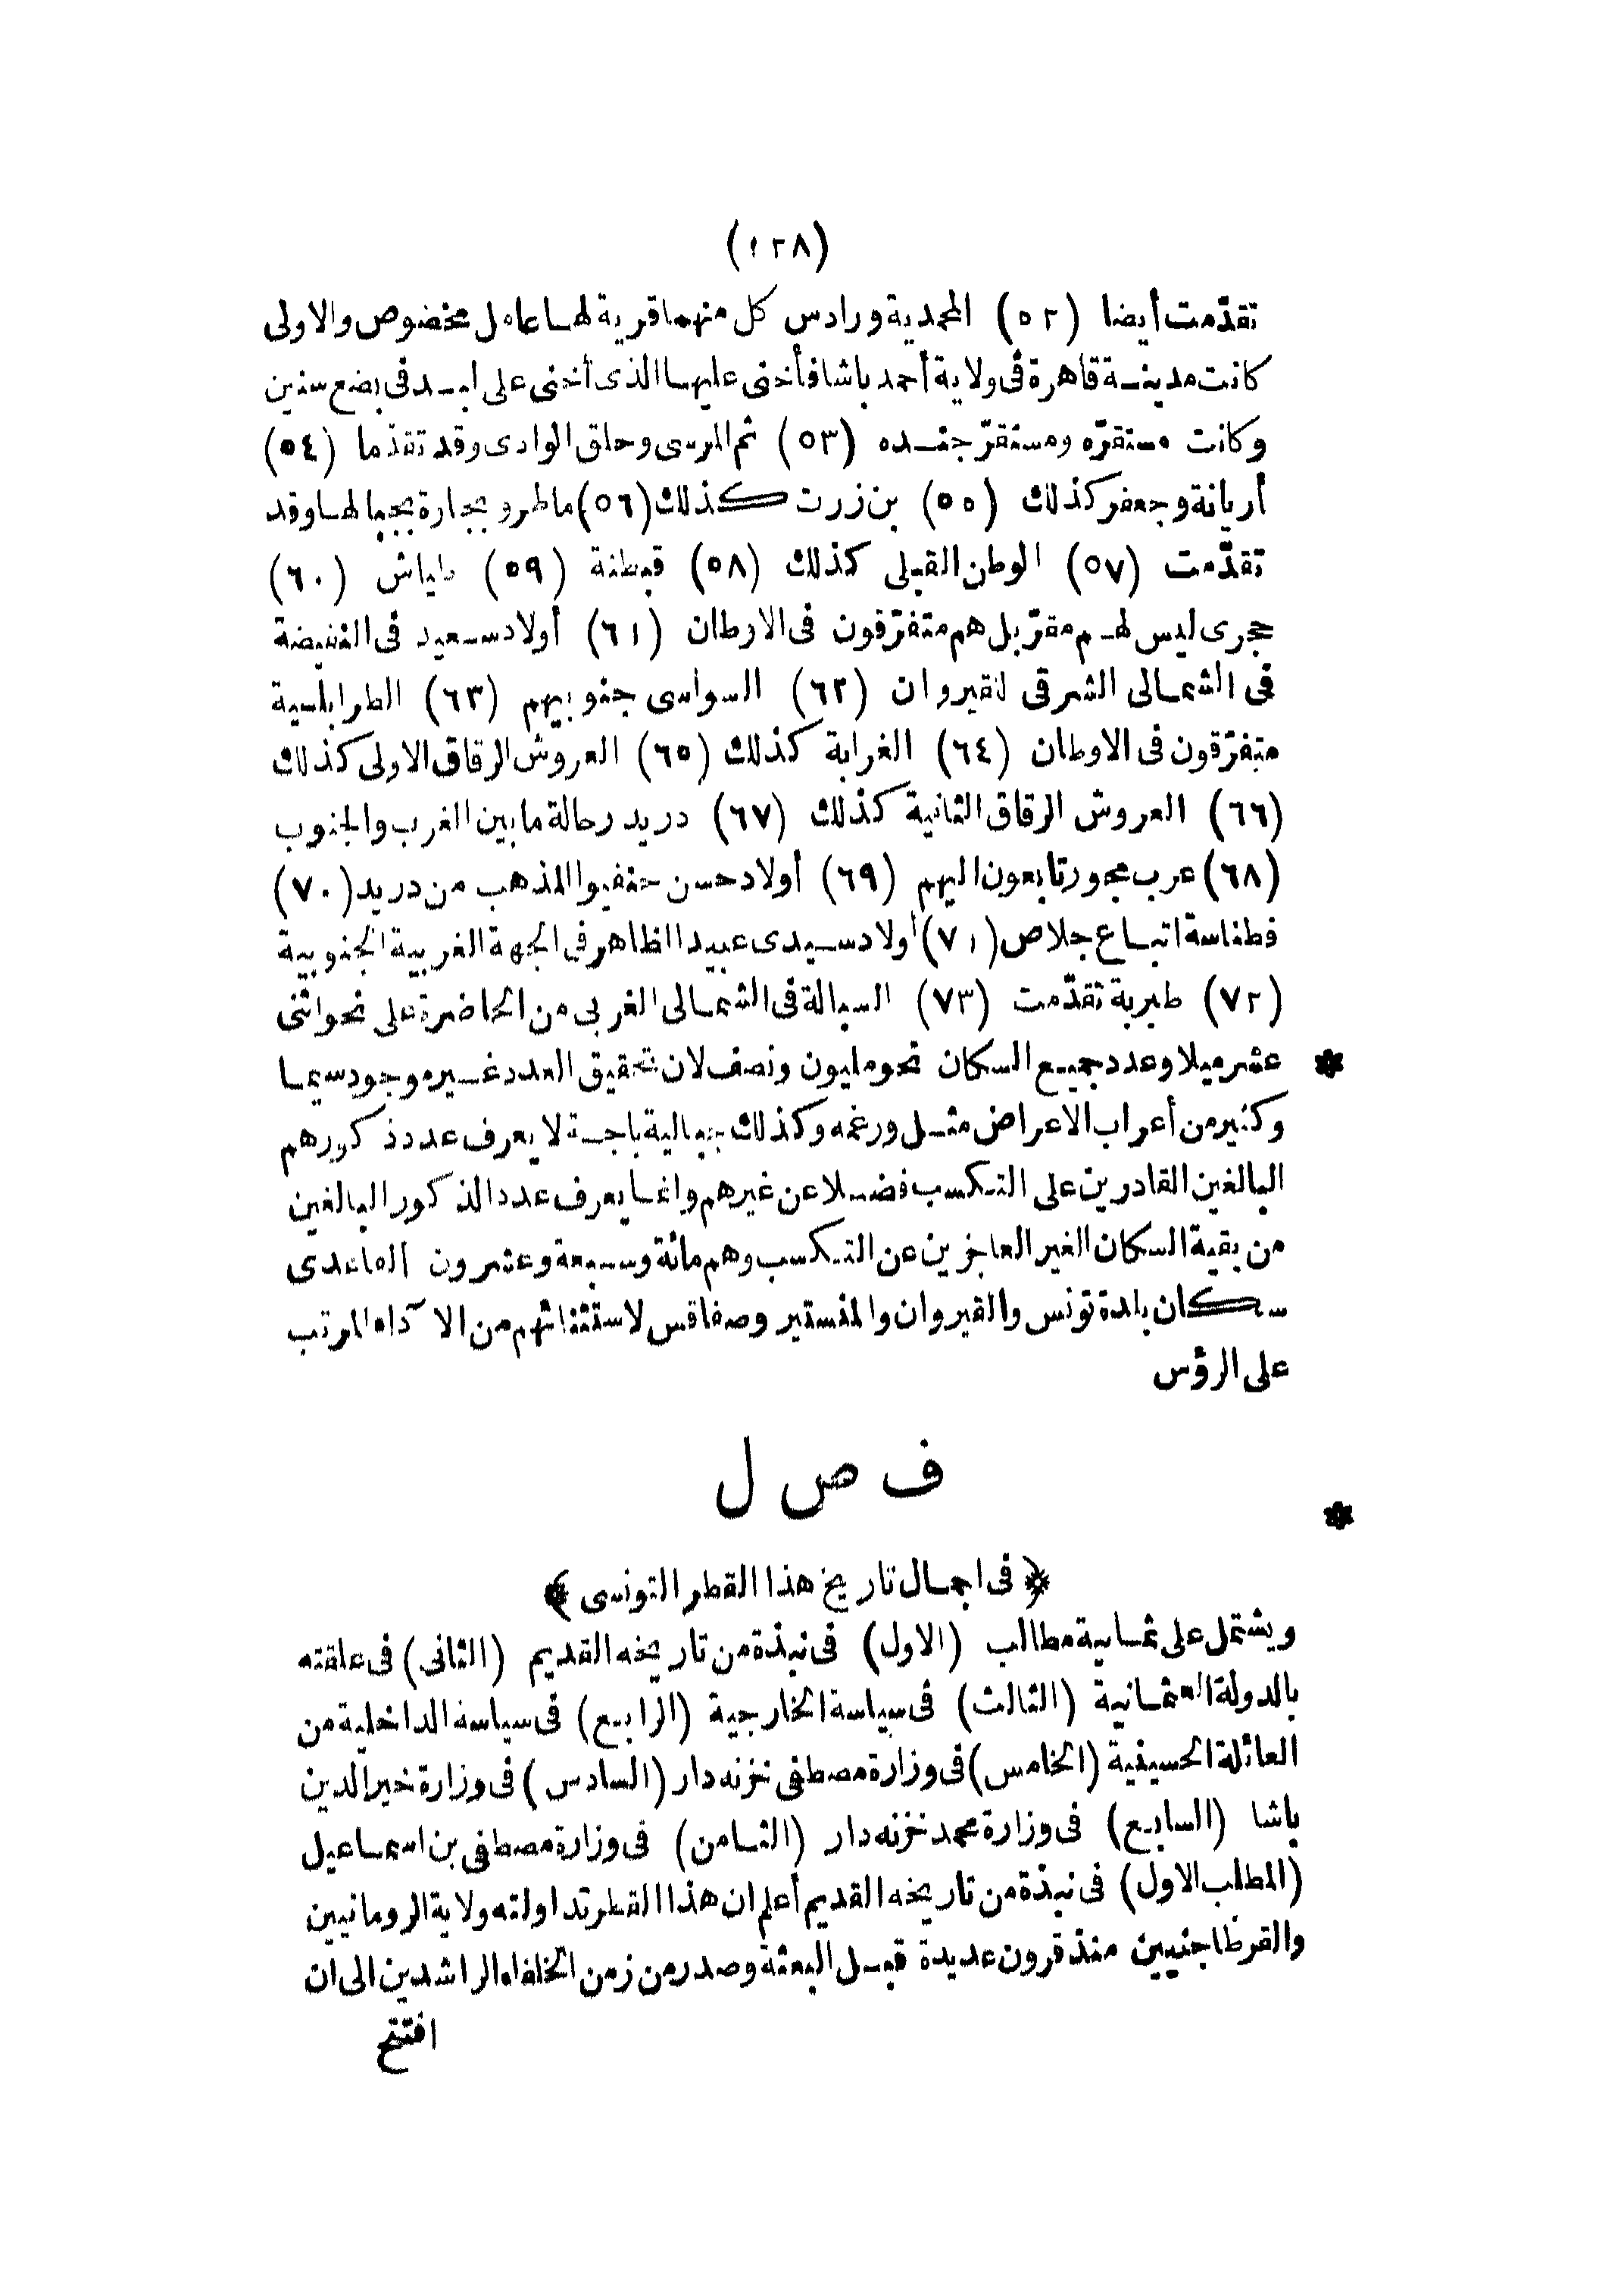 (١٢٨)
تقدّمت أيضا (٥٢) المحمدية ورادس كل منهما قرية لها عامل مخصوص والاولى
كانت مدينة قاهرة فى ولاية أحمد باشا فأخنى عليها الذى أخنى على لبد فى بضع سنين
وكانت مستقرّه ومستقرّ جنده (٥٣) ثم المرسى وحلق الوادى وقد تقدّما (٥٤)
أريانة وجعفر كذلك (٥٥) بن زرت كذلك (٥٦) ماطر وبجارة بجبالها وقد
تقدّمت (٥٧) الوطن القبلى كذلك (٥٨) قبطنة (٥٩) طياش (٦٠)
حجرى ليس لهم مقرّ بل هم متفرّقون فى الاوطان (٦١) أولاد سعيد فى النفيضة
فى الشمالى الشرقى للقيروان (٦٢) السواسى جنوبيهم (٦٣) الطرابلسية
متفرّقون فى الاوطان (٦٤) الغرابة كذلك (٦٥) العروش الرقاق الاولى كذلك
(٦٦) العروش الرقاق الثانية كذلك (٦٧) دريد رحالة ما بين الغرب والجنوب
(٦٨) عرب مجور تابعون اليهم (٦٩) أولاد حسن حنفيوا المذهب من دريد (٧٠)
فطناسة اتباع جلاص (٧١) أولاد سيدى عبيد الظاهر فى الجهة الغربية الجنوبية
(٧٢) طبربة تقدّمت (٧٣) السبالة فى الشمالى الغربى من الحاضرة على نحو اثنى
عشر ميلا وعدد جميع السكان نحو مليون ونصف لان تحقيق العدد غير موجود سيما *
وكثير من أعراب الاعراض مثل ورغمه وكذلك بجبالية باجة لا يعرف عدد ذكورهم
البالغين القادرين على التكسب فضلا عن غيرهم وانما يعرف عدد الذكور البالغين
من بقية السكان الغير العاجزين عن التكسب وهم مائة وسبعة وعشرون ألفا عدى
سكان بلدة تونس والقيروان والمنستير وصفاقس لاستثنائهم من الآداء المرتب
على الرؤس
ف ص ل
*
﴿ فى اجمال تاريخ هذا القطر التونسى ﴾
ويشتمل على ثمانية مطالب (الاول) فى نبذة من تاريخه القديم (الثانى) فى علقته
بالدولة العثمانية (الثالث) فى سياسة الخارجية (الرابع) فى سياسه الداخلية من
العائلة الحسينية (الخامس) فى وزارة مصطفى خزنه دار (السادس) فى وزارة خير الدين
باشا (السابع) فى وزارة محمد خزنه دار (الثامن) فى وزارة مصطفى بن اسماعيل
(المطلب الاول) فى نبذة من تاريخه القديم أعلم ان هذا القطر تداولته ولاية الرومانيين
والقرطاجنيين منذ قرون عديدة قبل البعثة وصدر من زمن الخلفاء الراشدين الى ان
افتتح